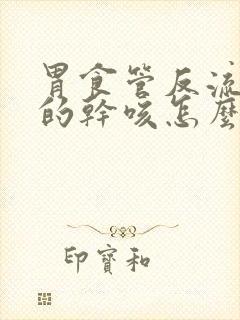 胃食管反流
的幹咳怎麼
印寶和